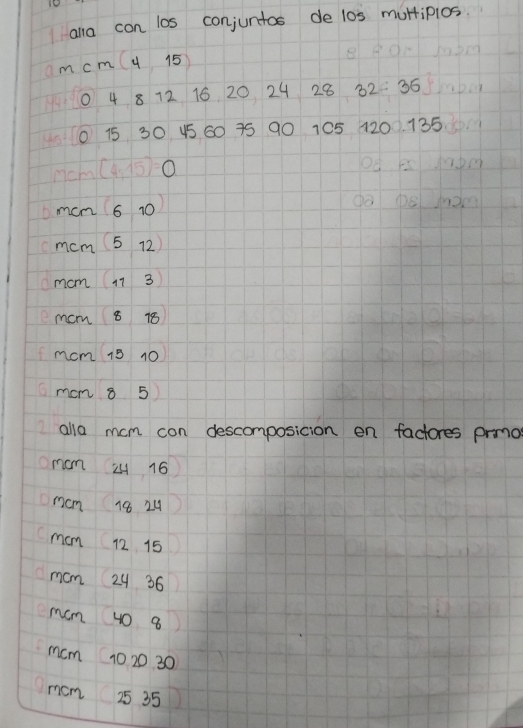 1 Halla con los conjuntos de los multiplos.
a mcm (4 15)
M4={0 4 8 12 16 20 24 28 32 36}
M15={0 15 30 45 60 75 90 105 120 135
mcm (4,15)=0
b mcm (6 10)
c mcm (5 12)
d mcm (11 3)
e mcm (8 18)
f mcm (15 10)
G mcm (8 5)
2 alla mcm con descomposicion en factores primos
a mcm (24 16)
b mcm (18 24)
c mcm (12 15)
d mcm (24 36)
e mcm (40 8)
f mcm (10 20 30)
g mcm (25 35)